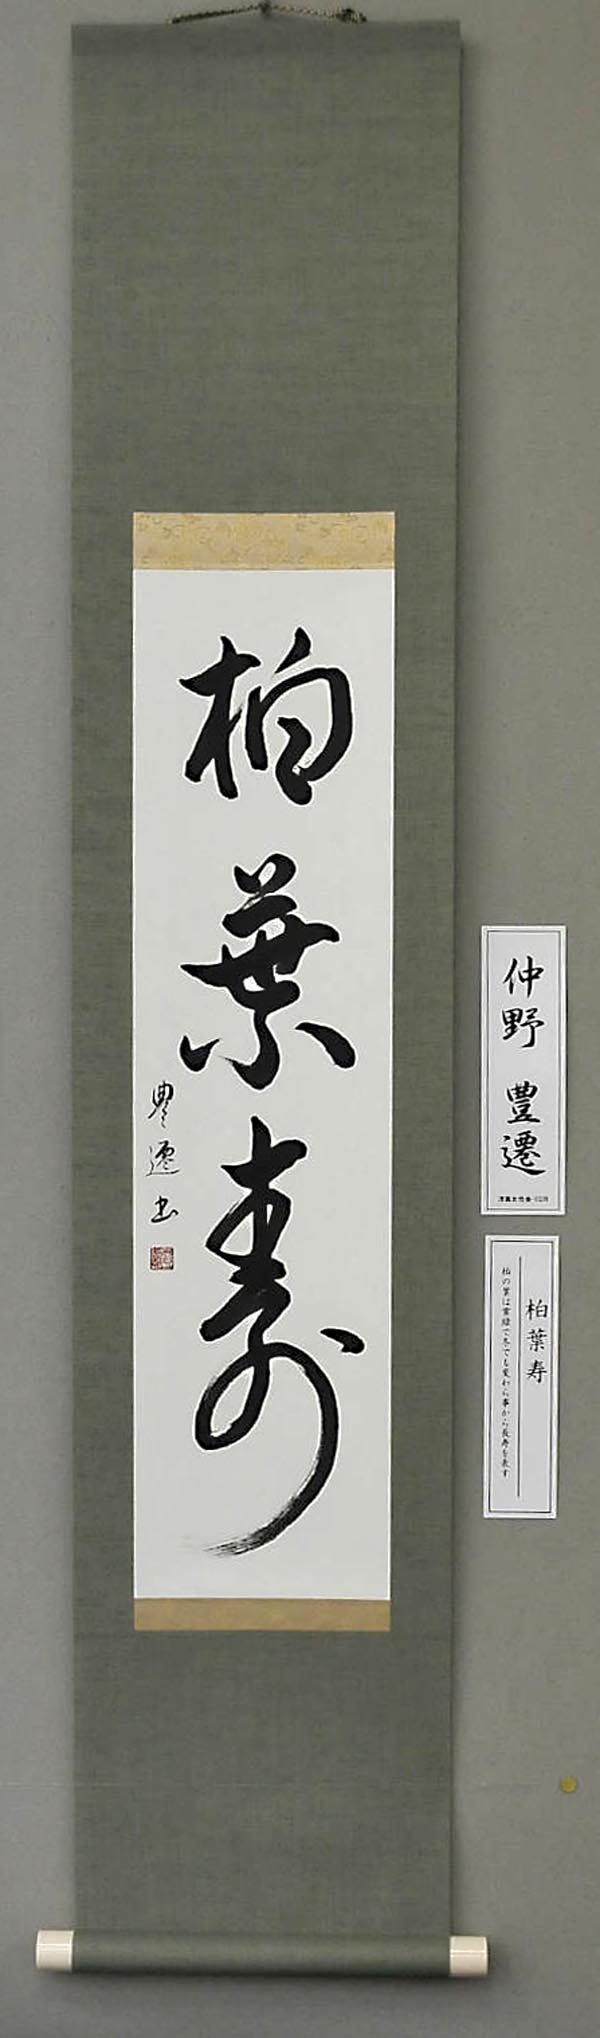 柏葉寿
豊遷書
仲野 豊遷
柏葉寿
柏の葉は常緑で冬でも変わら事から長寿を表す